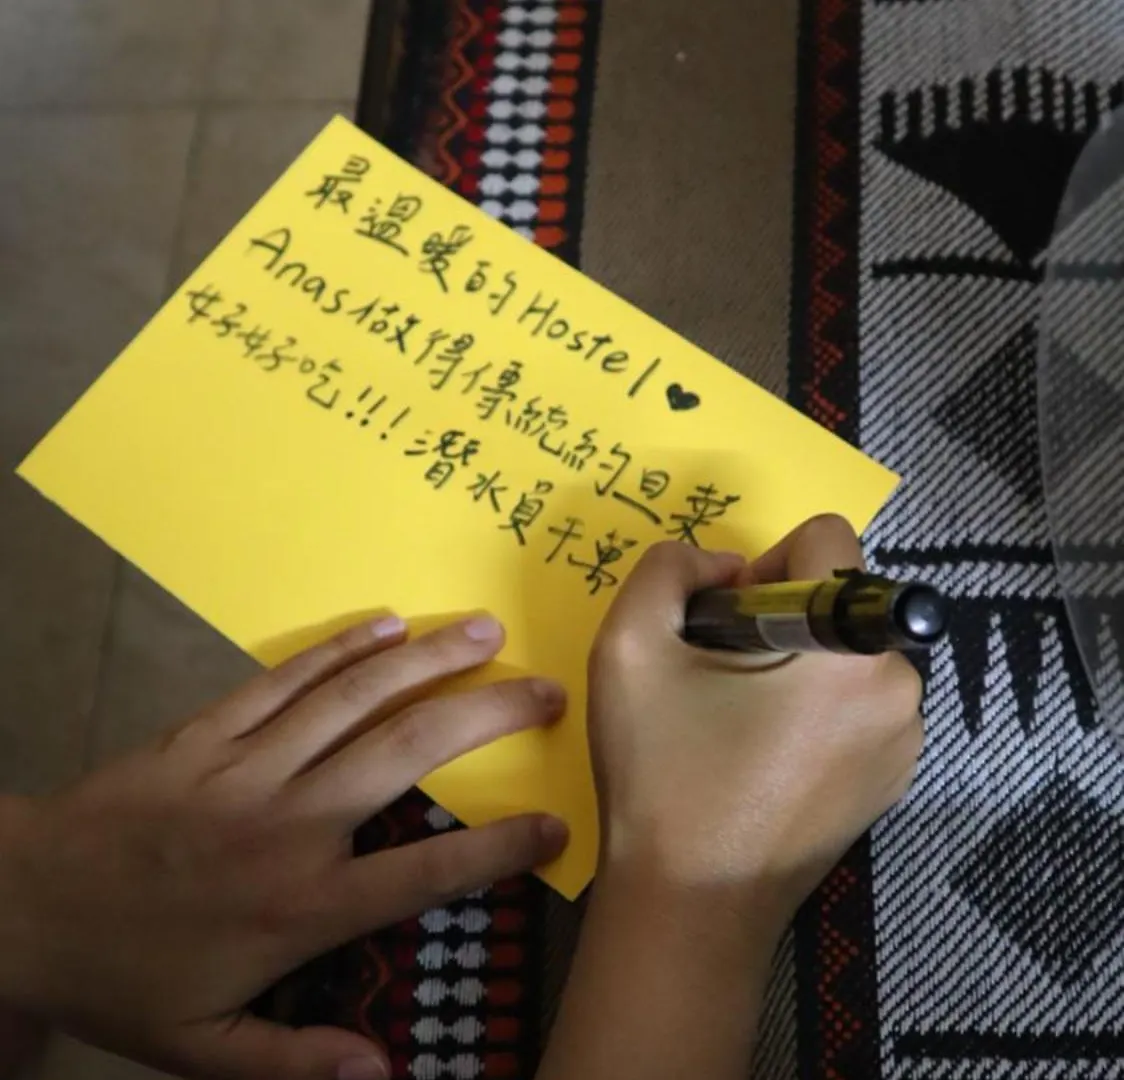 最溫暖的Hostel♥
Anas做得傳統約旦菜
好好吃!!!潛水員千萬